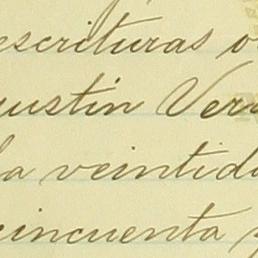 escrituras o
gustin Ver
la veintid
cincuenta y